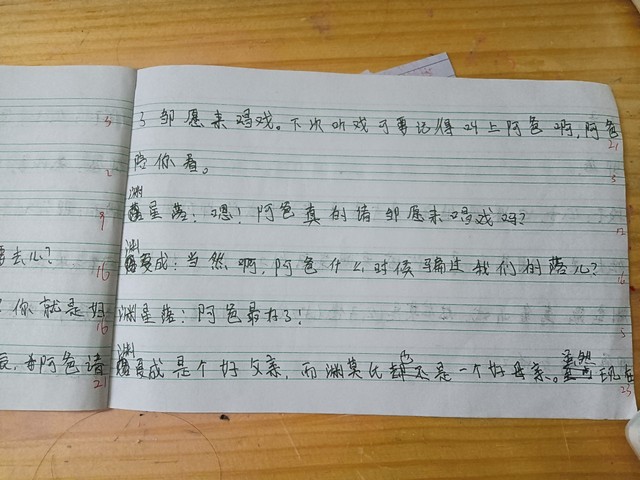 去心?
你就是妈
阿爸请
3邹愿来唱戏。下次听戏可要记得叫上阿爸啊,阿爸
陪你看。
渊星落:嗯!阿爸真的请邹愿来唱戏吗?
渊夏成:当然啊,阿爸什么时候骗过我们的落儿?
渊星落:阿爸最好了!
渊夏成是个好父亲,而渊莫氏也不是一个好母亲。虽然现在
5
2
9
16
16
21
21
5
12
16
5
23